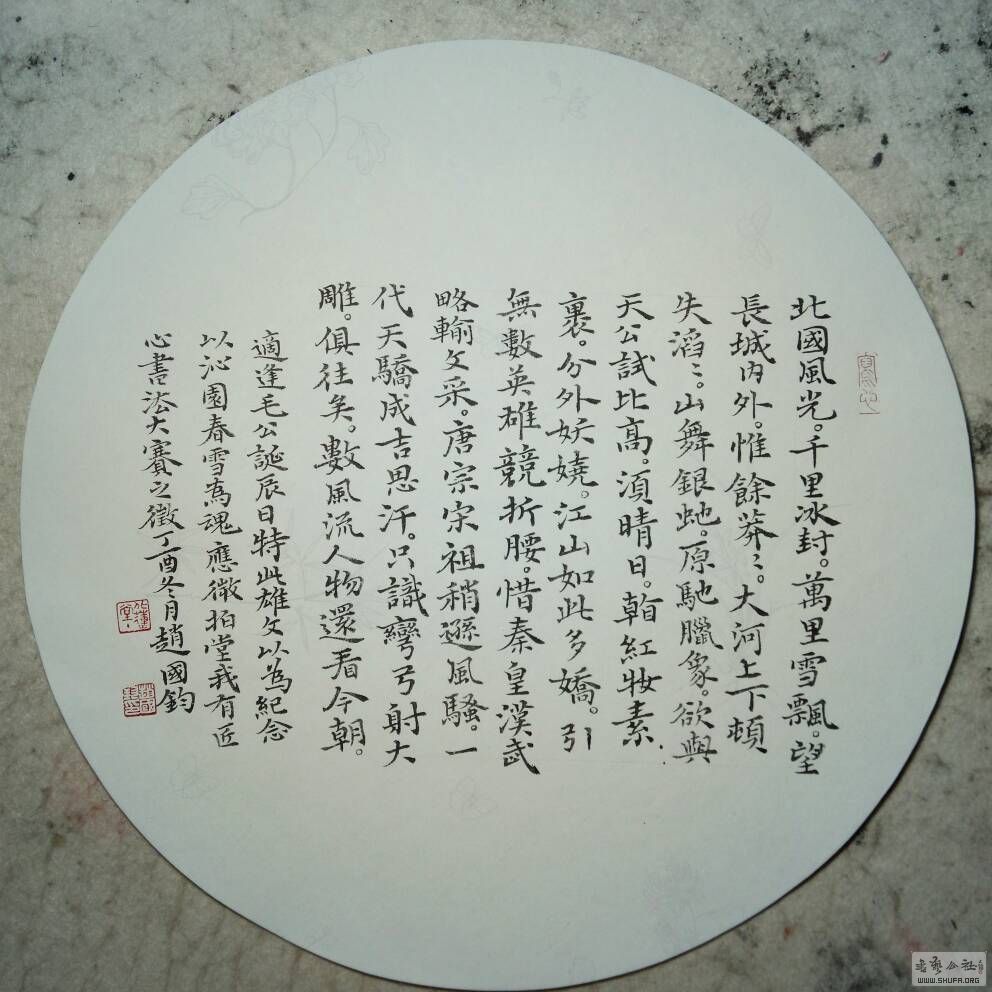 北國風光。千里冰封。萬里雪飄。望
長城內外。惟餘莽〻。大河上下頓
失滔〻。山舞銀虵。原馳臘象。欲與
天公試比高。湏晴日。看紅妝素
裹。分外妖嬈。江山如此多嬌。引
無數英雄競折腰。惜秦皇漢武
略輸文采。唐宗宋祖稍遜風騷。一
代天驕成吉思汗。只識彎弓射大
雕。俱往矣。數風流人物還看今朝。
適逢毛公誕辰日特此雄文以為紀念
以沁園春雪為魂應徵拍堂我有匠
心書法大賽之徵丁酉冬月趙國鈞
WWW.SHUFA.ORG